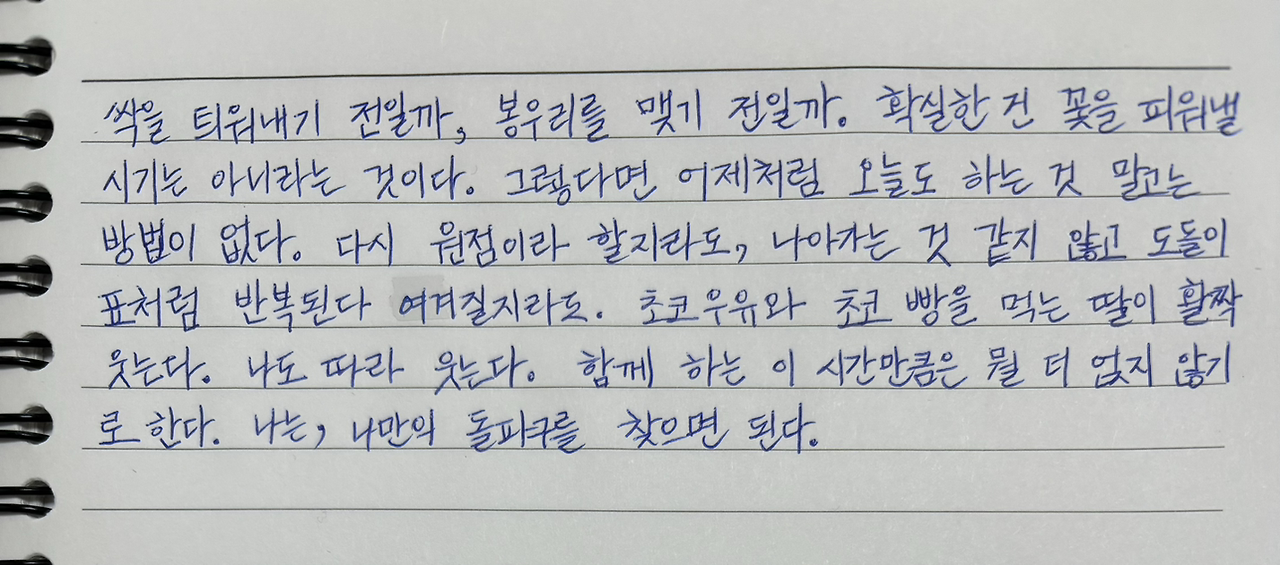 싹을 틔워내기 전일까, 봉우리를 맺기 전일까. 확실한 건 꽃을 피워낼
시기는 아니라는 것이다. 그렇다면 어제처럼 오늘도 하는 것 말고는
방법이 없다. 다시 원점이라 할지라도, 나아가는 것 같지 않고 도돌이
표처럼 반복된다 여겨질지라도. 초코우유와 초코 빵을 먹는 딸이 활짝
웃는다. 나도 따라 웃는다. 함께 하는 이 시간만큼은 뭘 더 얹지 않기
로 한다. 나는, 나만의 돌파구를 찾으면 된다.